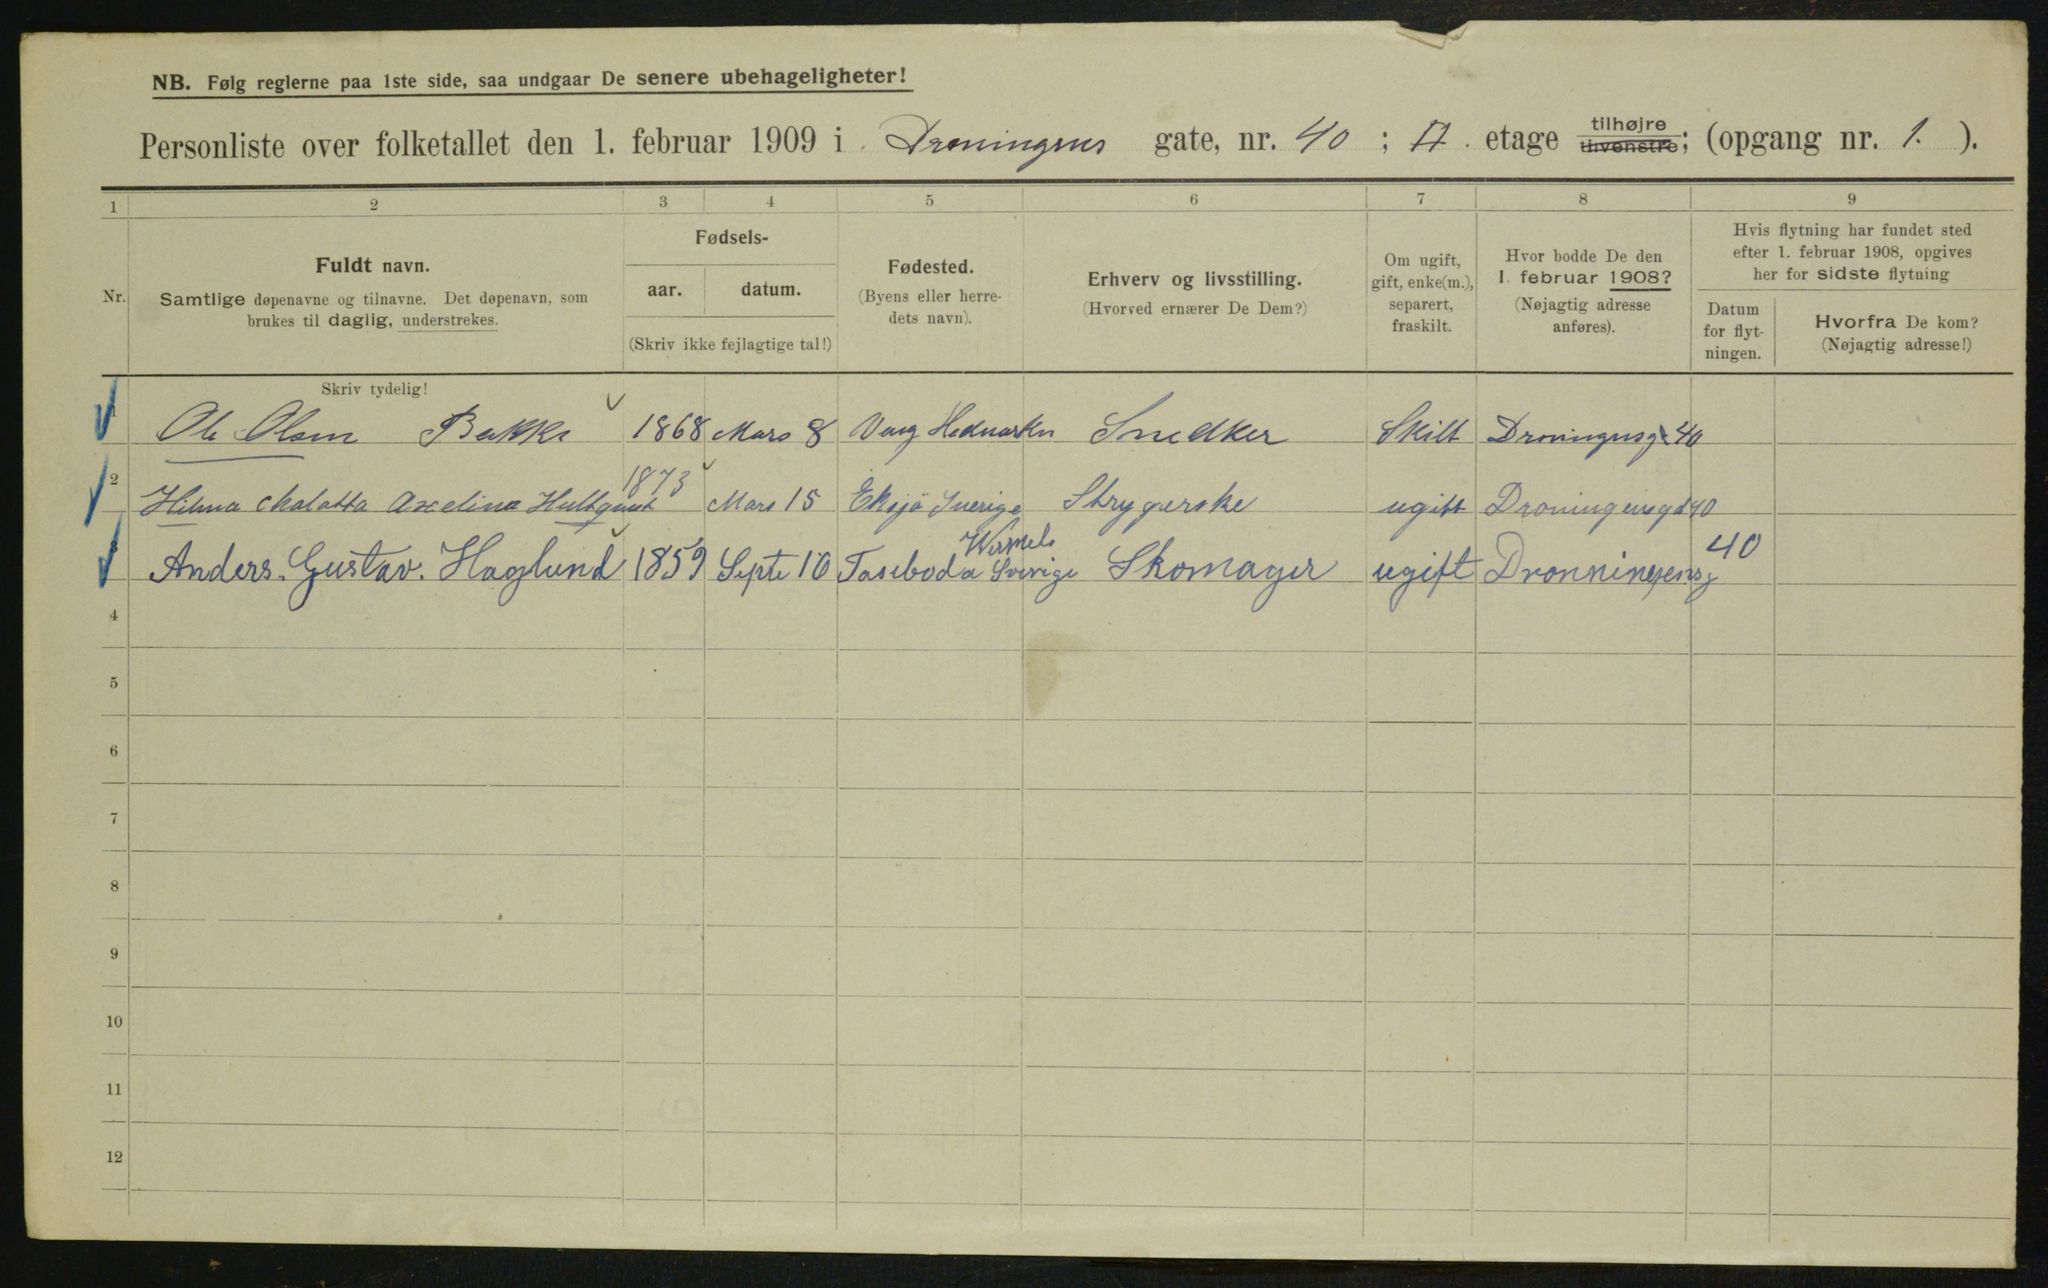 NB. Følg reglerne paa 1ste side, saa undgaar De senere ubehageligheter!
Personliste over folketallet den 1. februar 1909 i Droningens gate, nr. 40 ; II. etage tilhøjre tilvenstre; (opgang nr. 1. ).
1 2 3 4 5 6 7 8 9
Nr.
Fuldt navn.
Samtlige døpenavne og tilnavne. Det døpenavn, som
brukes til daglig, understrekes.
Fødsels-
aar. datum.
(Skriv ikke fejlagtige tal!)
Fødested.
(Byens eller herre-
dets navn).
Erhverv og livsstilling.
(Hvorved ernærer De Dem?)
Om ugift,
gift, enke(m.),
separert,
fraskilt.
Hvor bodde De den
1. februar 1908?
(Nøjagtig adresse
anføres).
Hvis flytning har fundet sted
efter 1. februar 1908, opgives
her for sidste flytning
Datum
for flyt-
ningen.
Hvorfra De kom?
(Nøjagtig adresse!)
Skriv tydelig!
1 Ole Olsen Bakke 1868 Mars 8 Vang Hedmarken Snedker Skilt Droningensg 40
2 Hilma Axelina Hultquist 1873 Mars 15 Eksjö Sverige Strygerske ugift Droningensgd 40
3 Anders. Gustav. Haglund 1859 Septe 16 Sverige Skomager ugift Dronningensg 40
4
5
6
7
8
9
10
11
12